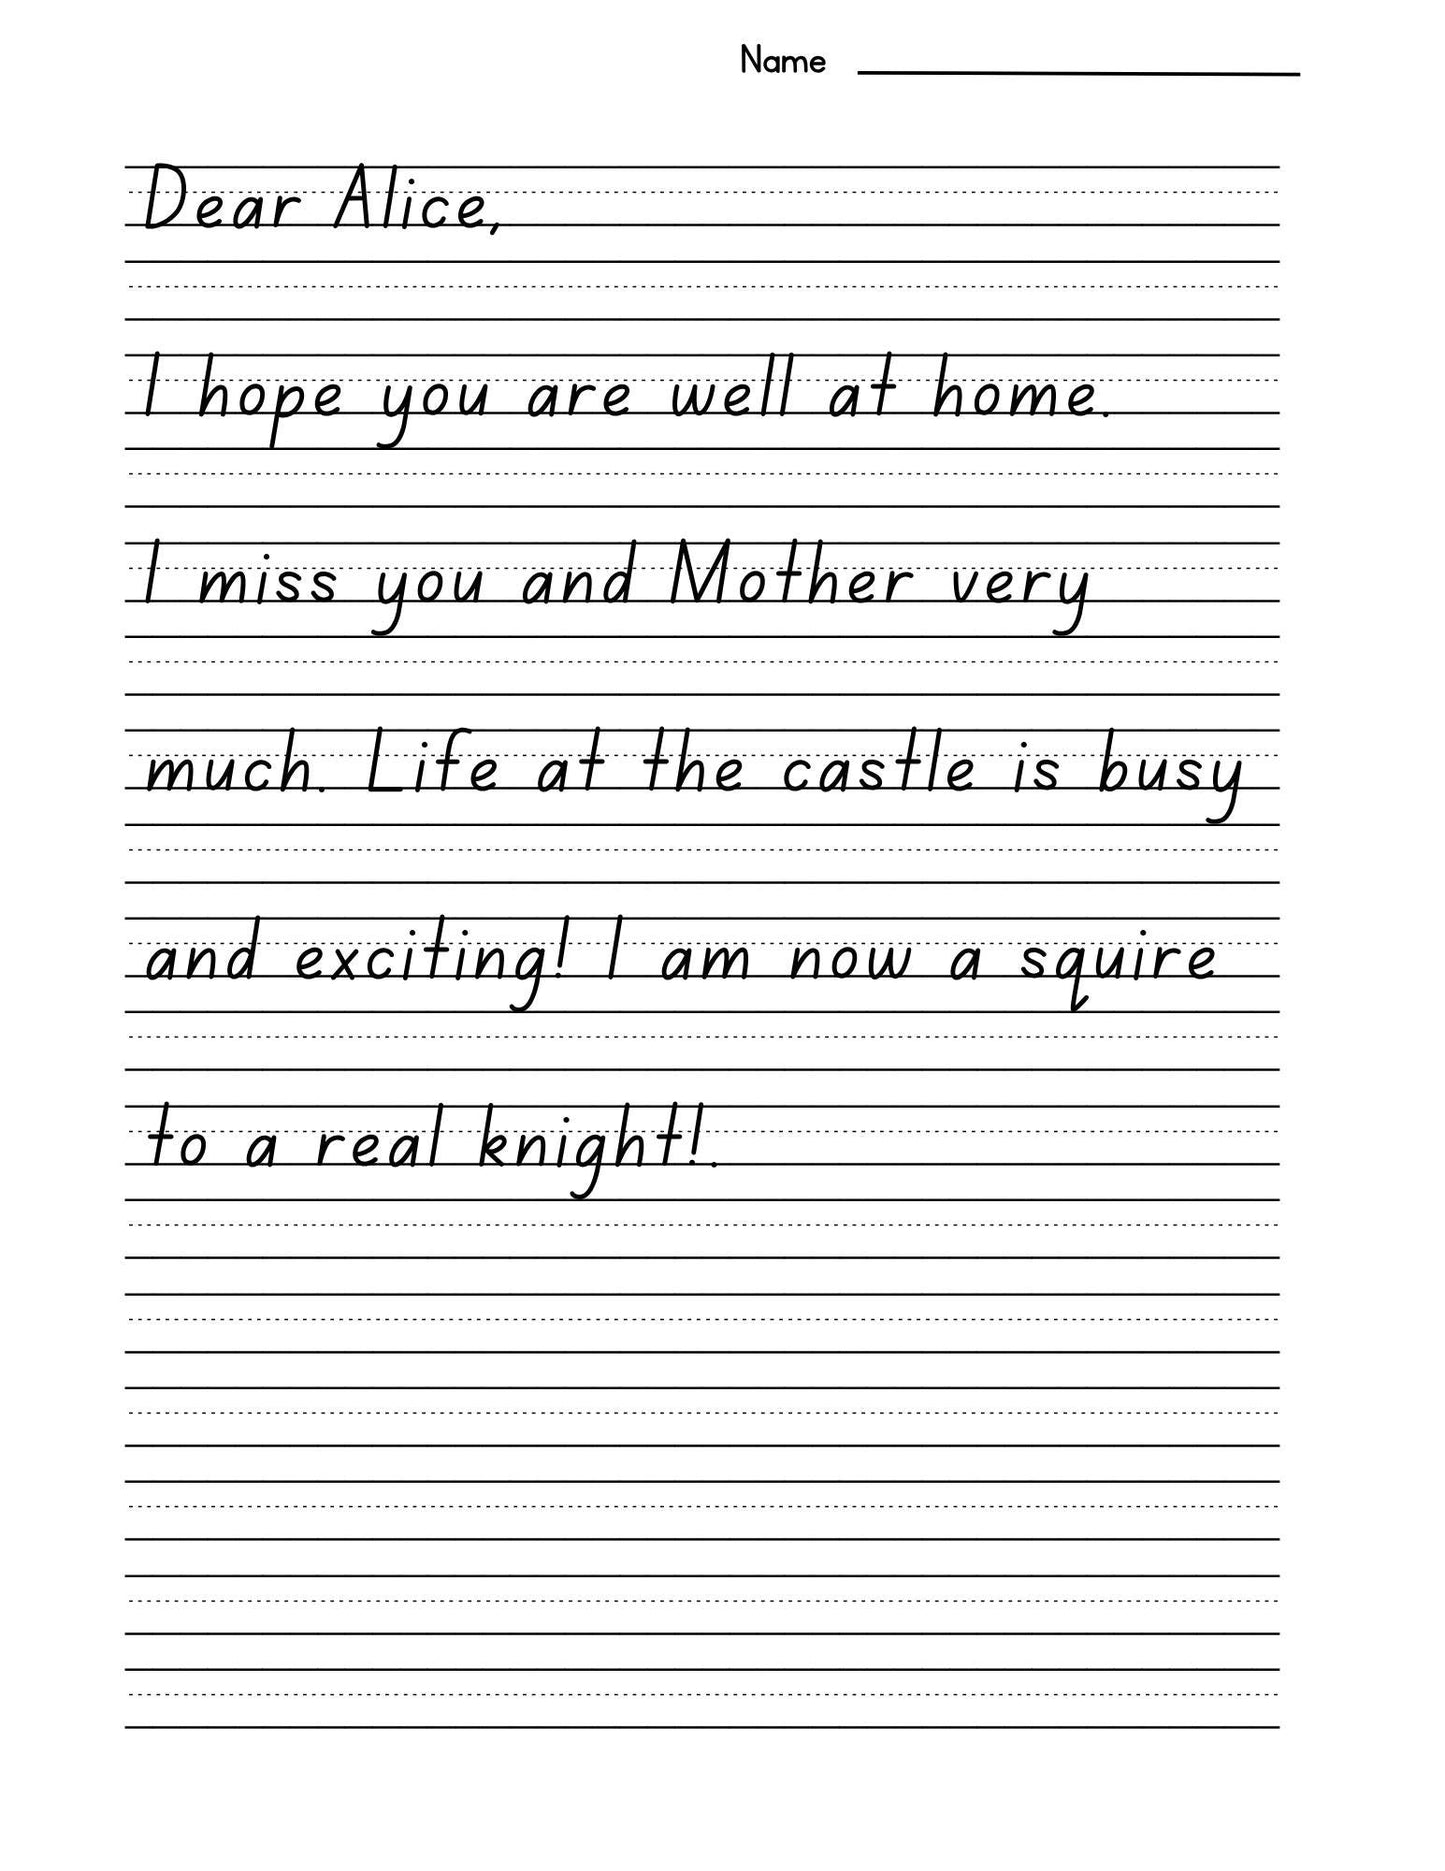 Name
Dear Alice,
I hope you are well at home.
I miss you and Mother very
much. Life at the castle is busy
and exciting! I am now a squire
to a real knight!.